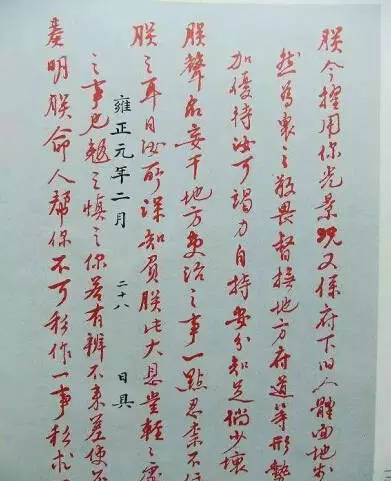 朕今擢用你光景况又係府下旧人體面地步
然為衆之敬畏督撫地方府道等形勢
加優待汝可竭力自持安分知足倘少壞
朕聲名妄干地方吏治之事一點忍柰不
朕之耳目汝所深知負朕此大恩豈輕之
雍正元年二月 二十八 日具
之事也勉之慎之你若有辨不來差使
奏明朕命人幫你不可私作一事私求